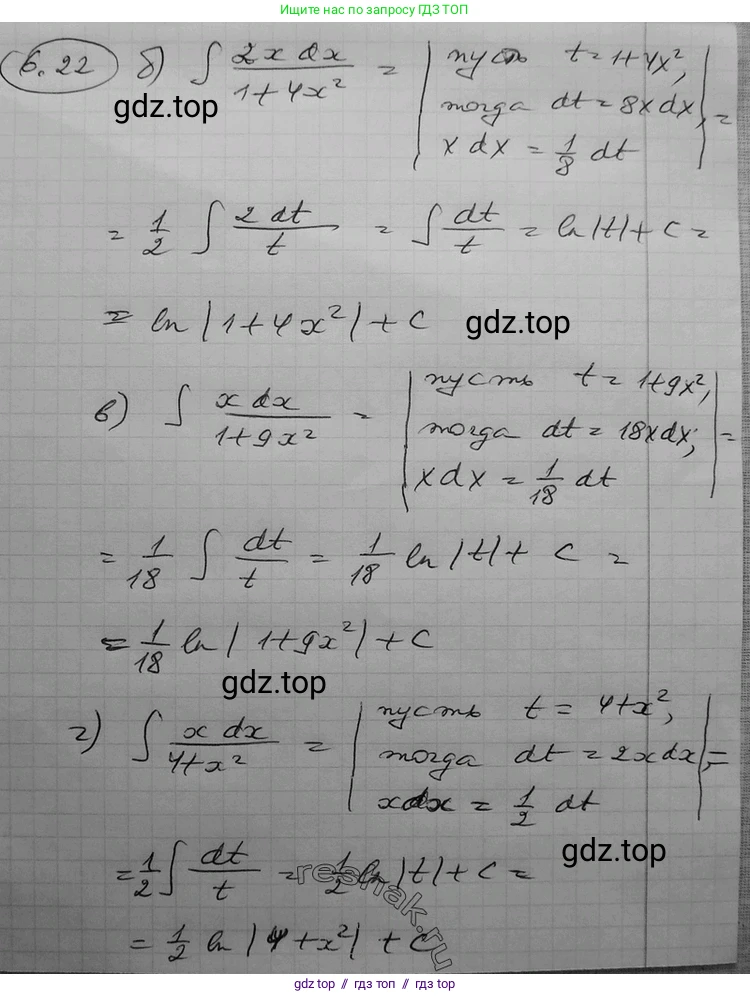 Ищите нас по запросу ГДЗ ТОП
6.22 б) ∫ 2x dx / 1+4x² = | пусть t = 1+4x²,
тогда dt = 8x dx, =
x dx = 1/8 dt |
gdz.top
= 1/2 ∫ 2 dt / t = ∫ dt / t = ln|t| + C =
= ln|1+4x²| + C
gdz.top
в) ∫ x dx / 1+9x² = | пусть t = 1+9x²,
тогда dt = 18x dx; =
x dx = 1/18 dt |
= 1/18 ∫ dt / t = 1/18 ln|t| + C =
= 1/18 ln|1+9x²| + C
gdz.top
г) ∫ x dx / 4+x² = | пусть t = 4+x²,
тогда dt = 2x dx, =
x dx = 1/2 dt |
gdz.top
= 1/2 ∫ dt / t = 1/2 ln|t| + C =
reshak.ru
= 1/2 ln|4+x²| + C
gdz.top // гдз топ // gdz.top // гдз топ